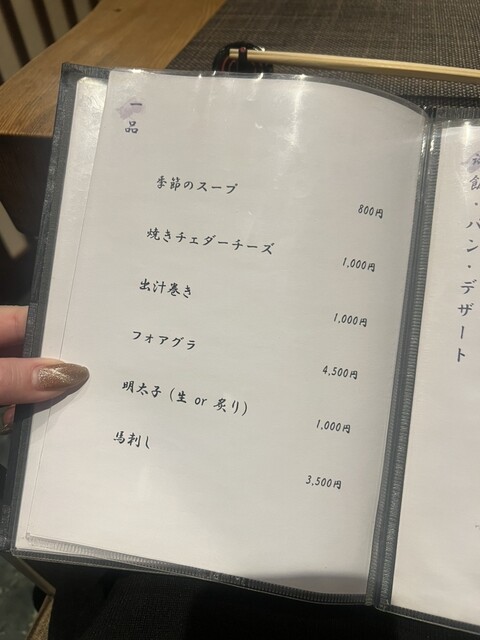 一品
季節のスープ
800円
焼きチェダーチーズ
1,000円
出汁巻き
1,000円
フォアグラ
4,500円
明太子（生 or 炙り）
1,000円
馬刺し
3,500円
飯・パン・デザート